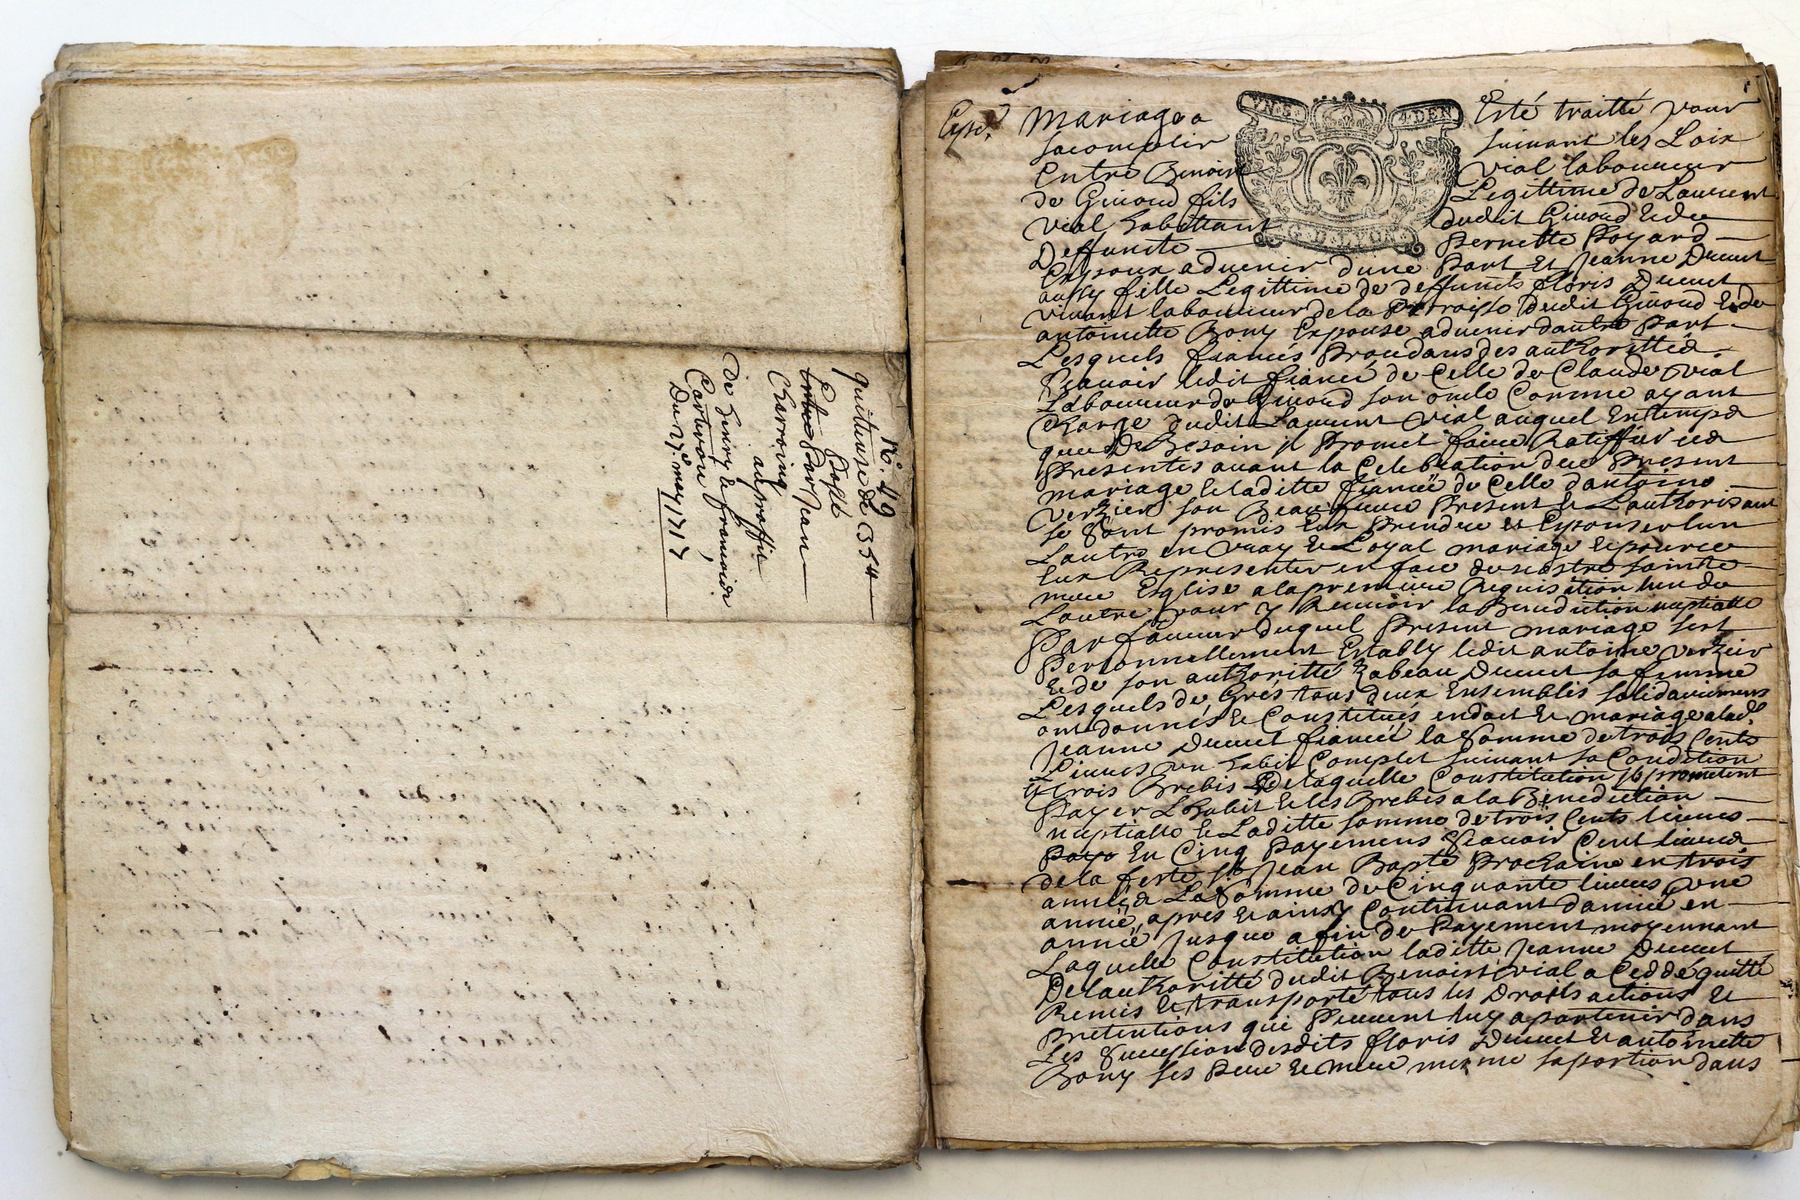 N.° 49
quittance de 35 ᵗᵗ 4
passé
Entre par Jean
Charroing
au proffit
de henry & francoise
Du 27.e may 1717
Expé.
Mariage a Esté traitté pour
sacomplir suivant les Loix
Entre Benoit Vial laboureur
de Giuoud fils Legittime de Laurent
Vial habittant dudit Giuoud Et de
Deffuncte Pernette Poyard
VN.S. 4.DEN
G.DE.LYON
Expoux aduenir dune Part Et Jeanne Ducret
aussy fille Legittime de deffuncts floris Ducret
viuant laboureur de la Parroisse dudit Giuoud Et de
antoinette Bony Expouse aduenir dautre Part
Lesquels fiancés Procedans des authorittés
Scauoir ledit fiancé de Celle de Claude Vial
Laboureur de Giuoud son oncle Comme ayant
Charge dudit Laurent Vial auquel En temps
que de Besoin jl Promet faire Ratiffier ces
Presentes auant la Celebration du Present
mariage Et laditte fiancéé de Celle dantoine
Verzier son Beaufrere Present Et Lauthorisant
se sont promis Eux Prendre Et Expouser lun
Lautre en vray Et Loyal mariage Et pour ce
Eux Representer en face de nostre sainte
mere Esglise a la premiere Requisition lun de
Lautre Pour y Receuoir la Benediction nuptialle
Par faueur duquel Present mariage sest
Personnellement Estably ledit antoine Verzier
Et de son authoritté Izabeau Ducret sa femme
Lesquels de Grés tous deux Ensembles solidairement
ont donnés Et Constitués en dot Et mariage a lad.e
Jeanne Ducret fiancéé la somme de trois Cents
Liures vn habit Complet suiuant sa Condition
Et trois Brebis De laquelle Constitution jls promettent
Payer Lhabit Et les Brebis a la Benediction
nuptialle Et Laditte somme de trois Cents liures
Paye En Cinq Payemens Scauoir Cent liures
de la feste St Jean Bapte Prochaine en trois
annéés La somme de Cinquante liures vne
annéé apres Et ainsy Continuant dannéé en
annéé Jusque a fin de Payement moyennant
Laquelle Constitution laditte Jeanne Ducret
De lauthoritté dudit Benoist Vial a Ceddé quitté
Remis Et transporté tous les Droits actions Et
Pretentions qui Peuuent luy apartenir dans
Les Succession desdits floris Ducret Et antoinette
Bony ses Pere Et mere mesme sa portion dans